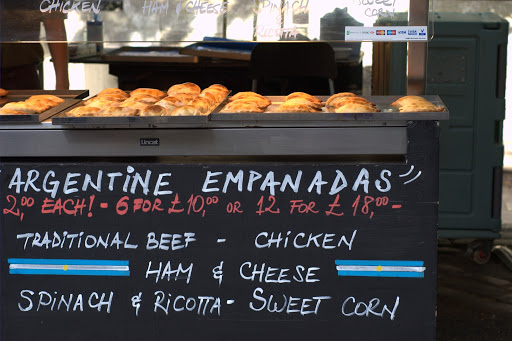 CHICKEN HAM & CHEESE SPINACH SWEET
RICOTTA CORN
VISA
Lincat
ARGENTINE EMPANADAS"
2,00 EACH! - 6 FOR £10,00 OR 12 FOR £18,00-
TRADITIONAL BEEF - CHICKEN
HAM & CHEESE
SPINACH & RICOTTA - SWEET CORN